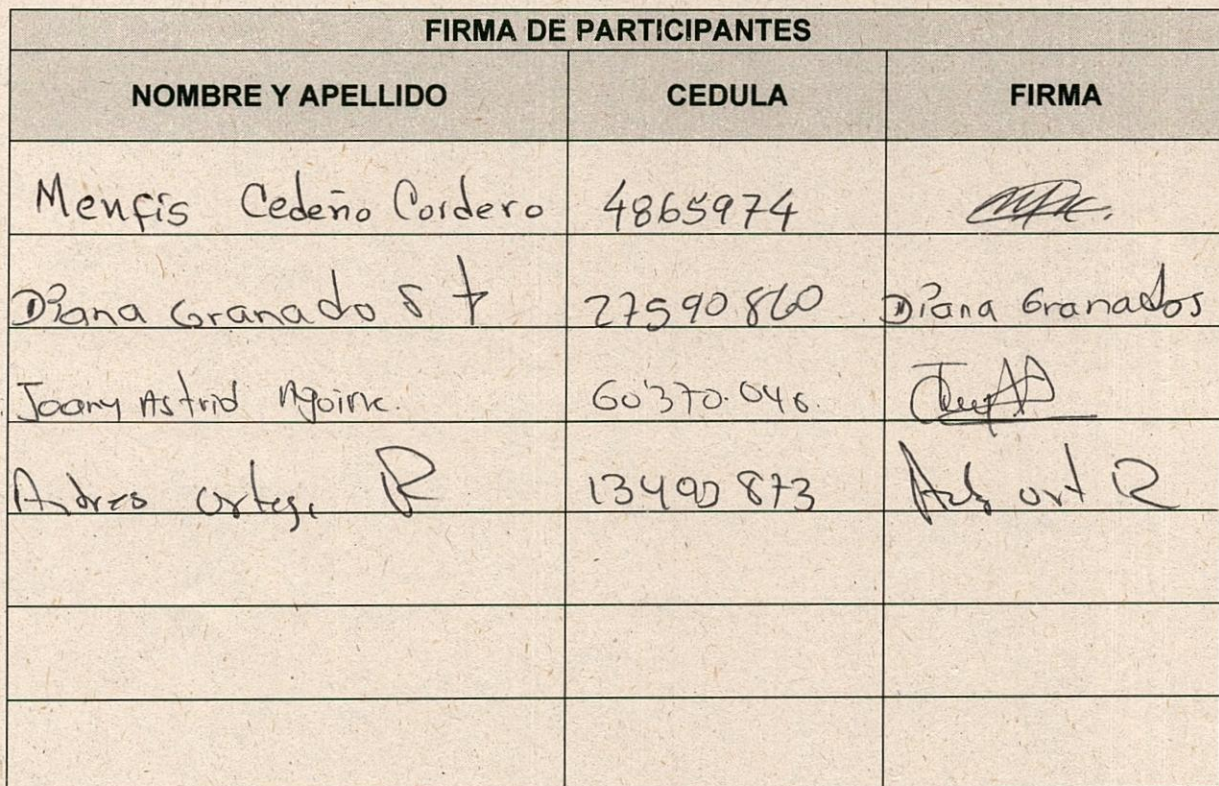 FIRMA DE PARTICIPANTES
NOMBRE Y APELLIDO CEDULA FIRMA
Menfis Cedeño Cordero 4865974
Diana Granados t 27590.860 Diana Granados
Astrid 60'370.046.
Andres Ortega R 13490873 ort R